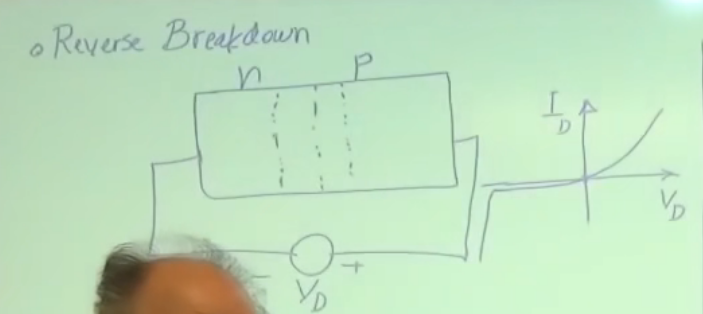 Reverse Breakdown
n p
I_D
V_D
- +
V_D